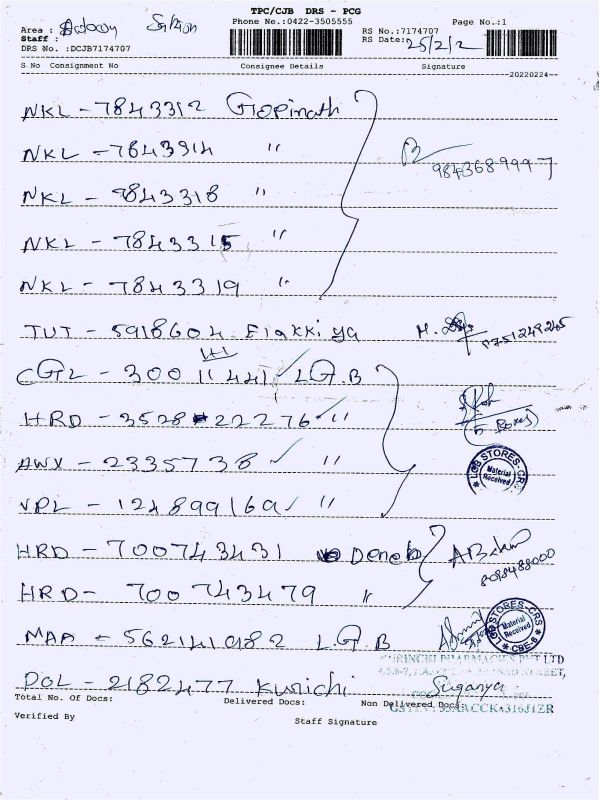 TPC/CJB DRS - PCG
Phone No.:0422-3505555
Page No.:1
Area :
Staff :
DRS No. :DCJB7174707
RS No.:7174707
RS Date:25/2/2
S No Consignment No Consignee Details Signature
20220224
NKL - 7843312 Gopinath
NKL - 7843314 "
9843689997
NKL - 7843318 "
NKL - 7843315 "
NKL - 7843319 "
TUT - 5918604 Elakkiya
8751249245
CGL - 300 11441 L.G.B
HRD - 3528 22276 "
(5 Boxes)
AWX - 2335738 "
LGB STORES-CRS
Material
Received
VPL - 124899169 "
HRD - 700743431
8098488000
HRD - 700743479 "
MAA - 562141982 L.G.B
LGB STORES-CRS
Material
Received
CBE-6
KURINCHI PHARMACIES PVT LTD
STREET,
DOL - 2182477 Kurichi Suganya
Total No. Of Docs: Delivered Docs: Non Delivered Docs:
Verified By
Staff Signature